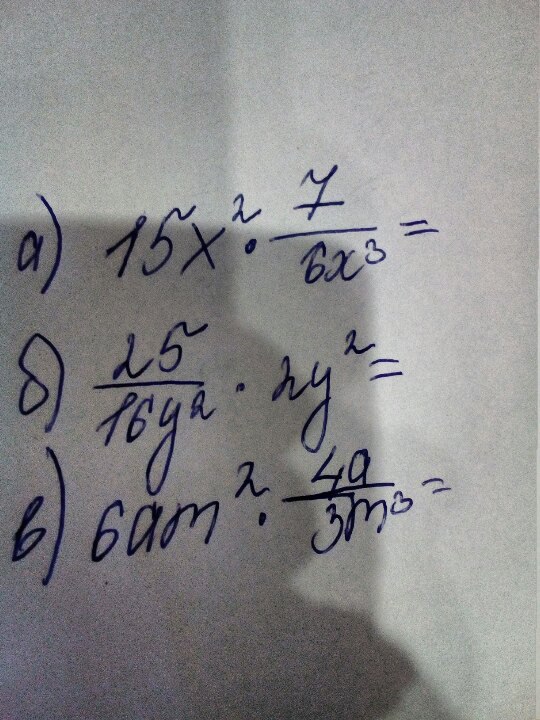 а) 15x² · 7/6x³ =
б) 25/16y² · 2y² =
в) 6am² · 4a/3m³ =